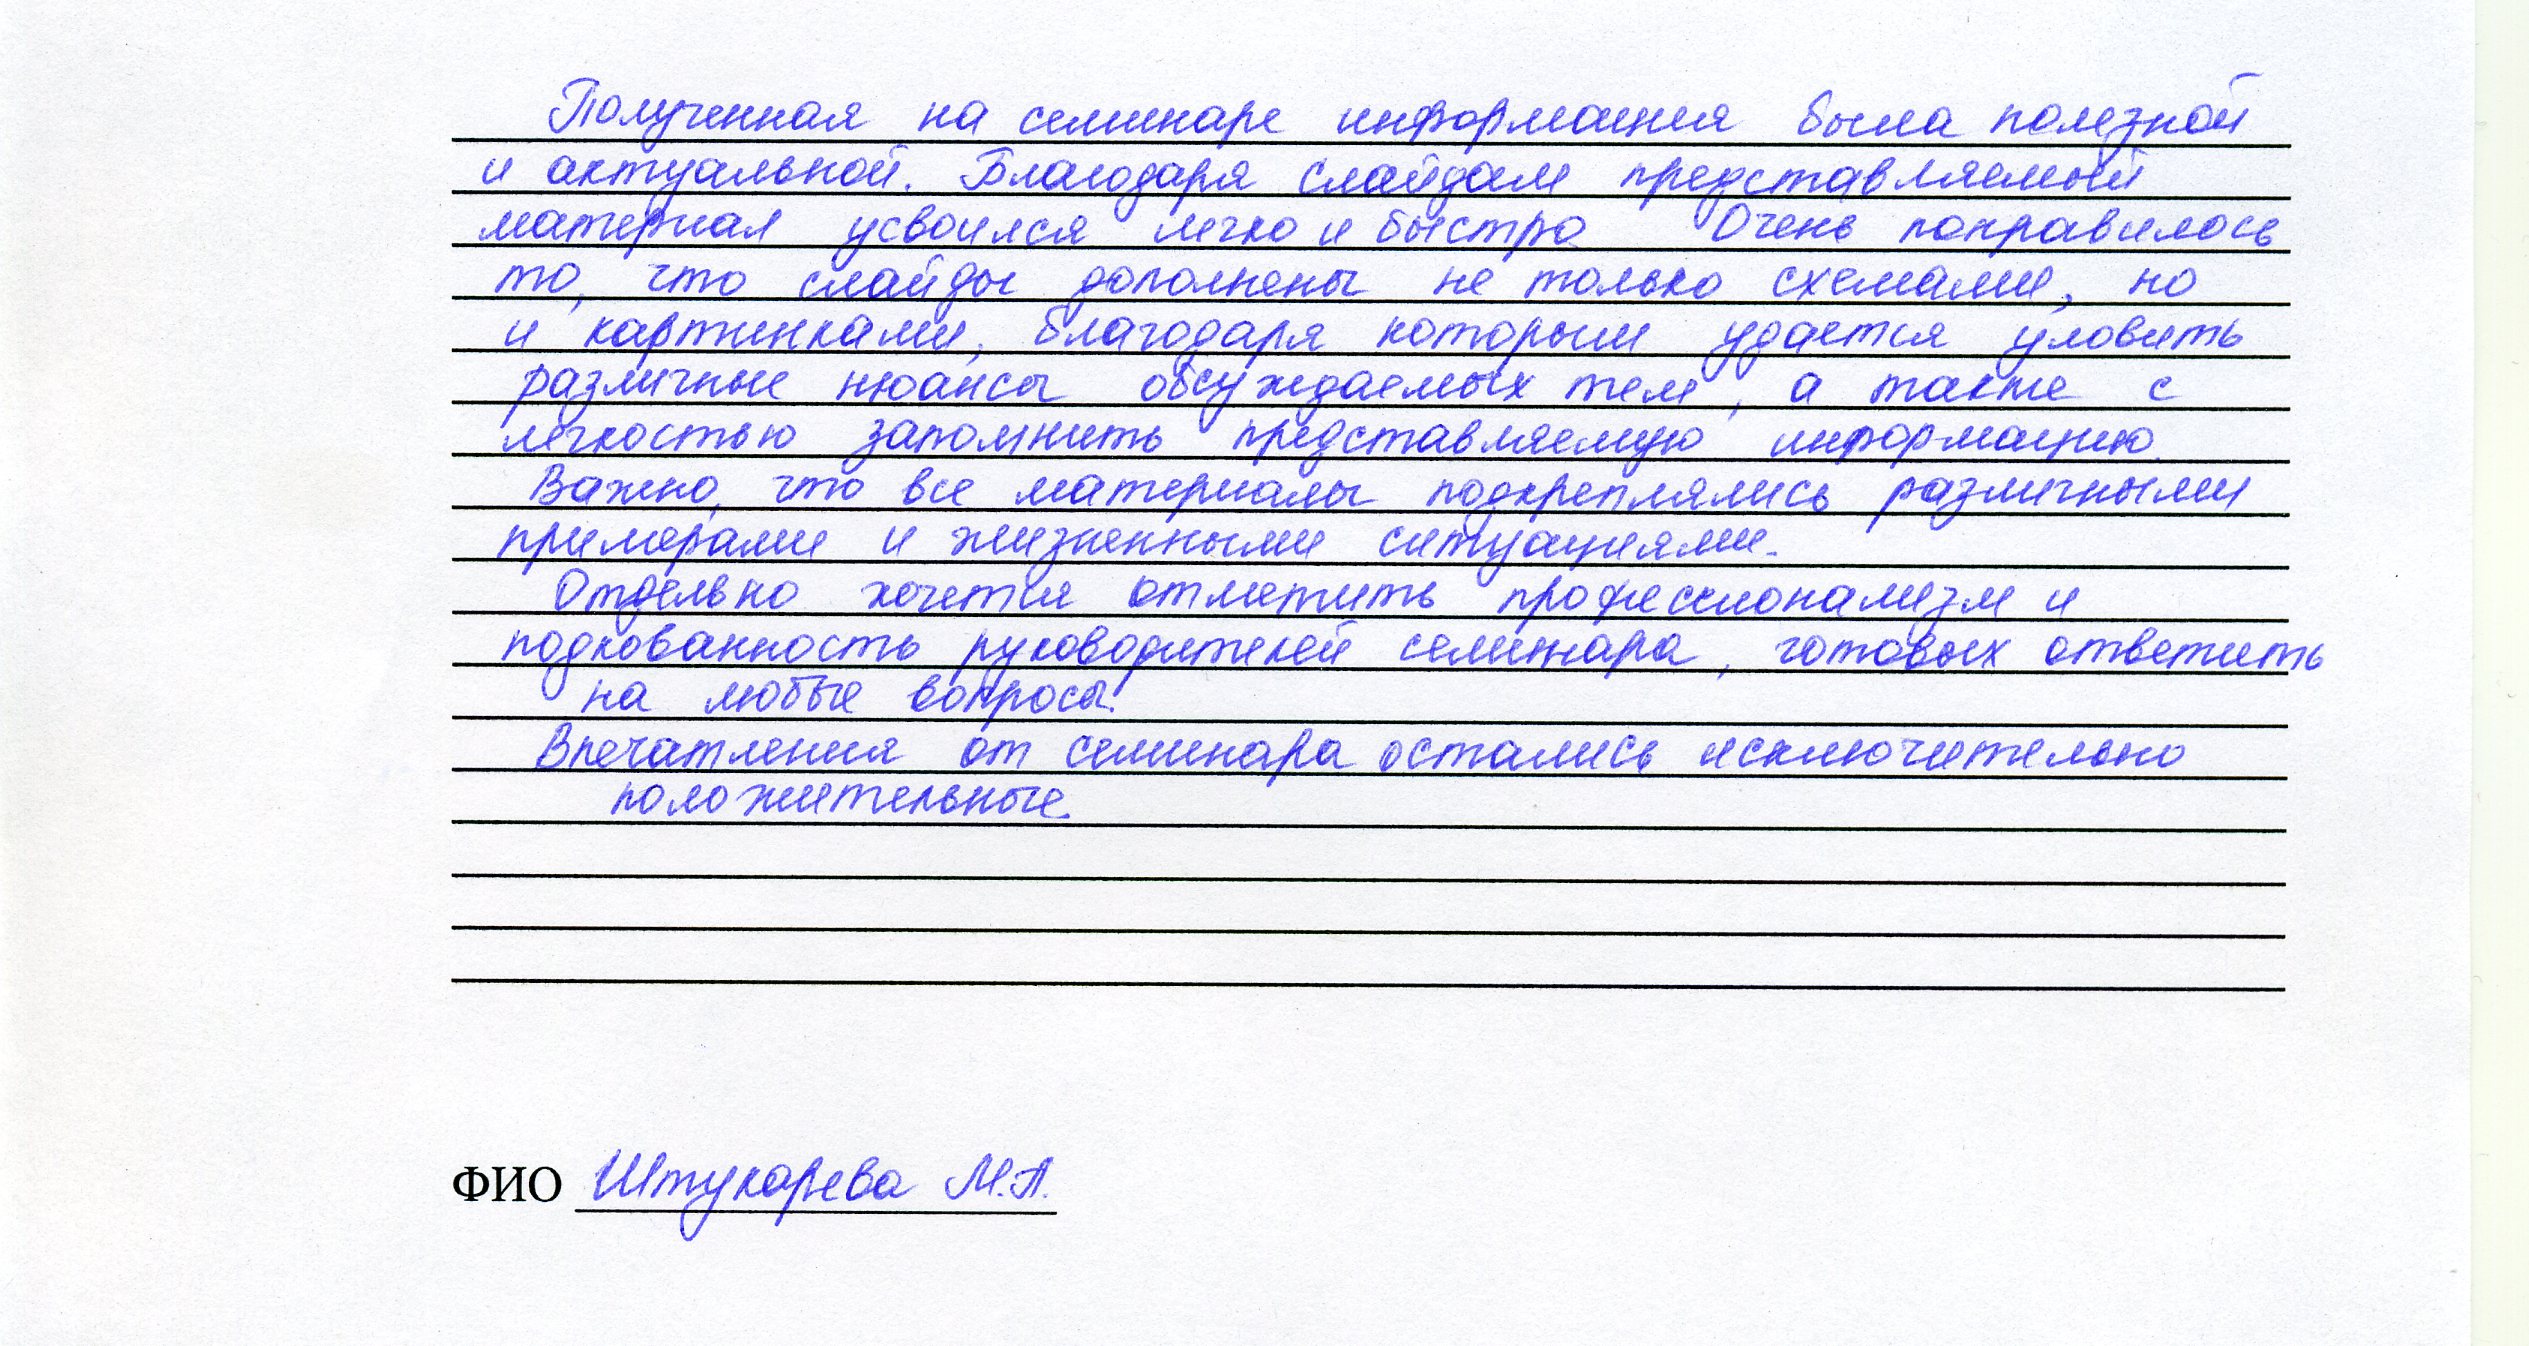 Полученная на семинаре информация была полезной
и актуальной. Благодаря слайдам представляемый
материал усвоился легко и быстро Очень понравилось
то, что слайды дополнены не только схемами, но
и картинками, благодаря которым удается уловить
различные нюансы обсуждаемых тем, а также с
легкостью запомнить представляемую информацию.
Важно, что все материалы подкреплялись различными
примерами и жизненными ситуациями.
Отдельно хочется отметить профессионализм и
подкованность руководителей семинара, готовых ответить
на любые вопросы.
Впечатления от семинара остались исключительно
положительные.
ФИО Штукарева М.А.